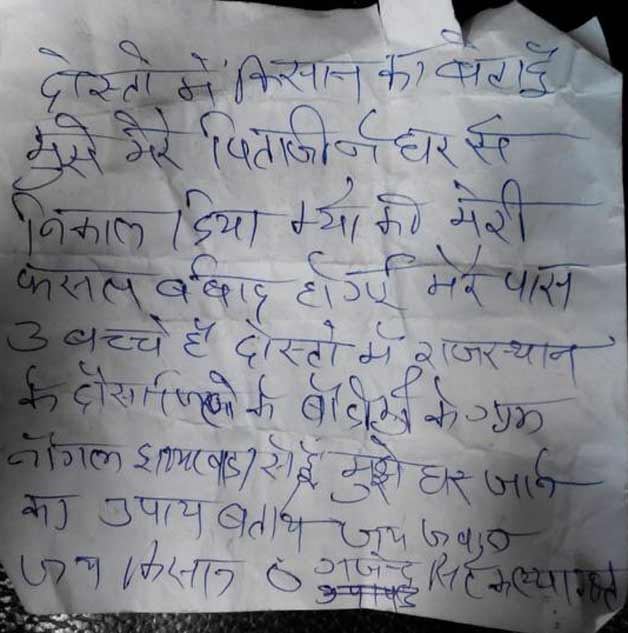 दोस्तो में किसान का बेटा हुँ
मुझे मेरे पिताजी ने घर से
निकाल दिया क्यो की मेरी
फसल बर्बाद हो गई मेरे पास
3 बच्चे है दोस्तो मैं राजस्थान
के दौसा जिले के बाँदीकुई के ग्राम
नाँगल झामरवाड़ा से हूँ मुझे घर जाने
का उपाय बताये जय जवान
जय किसान गजेन्द्र सिंह कल्याणवत